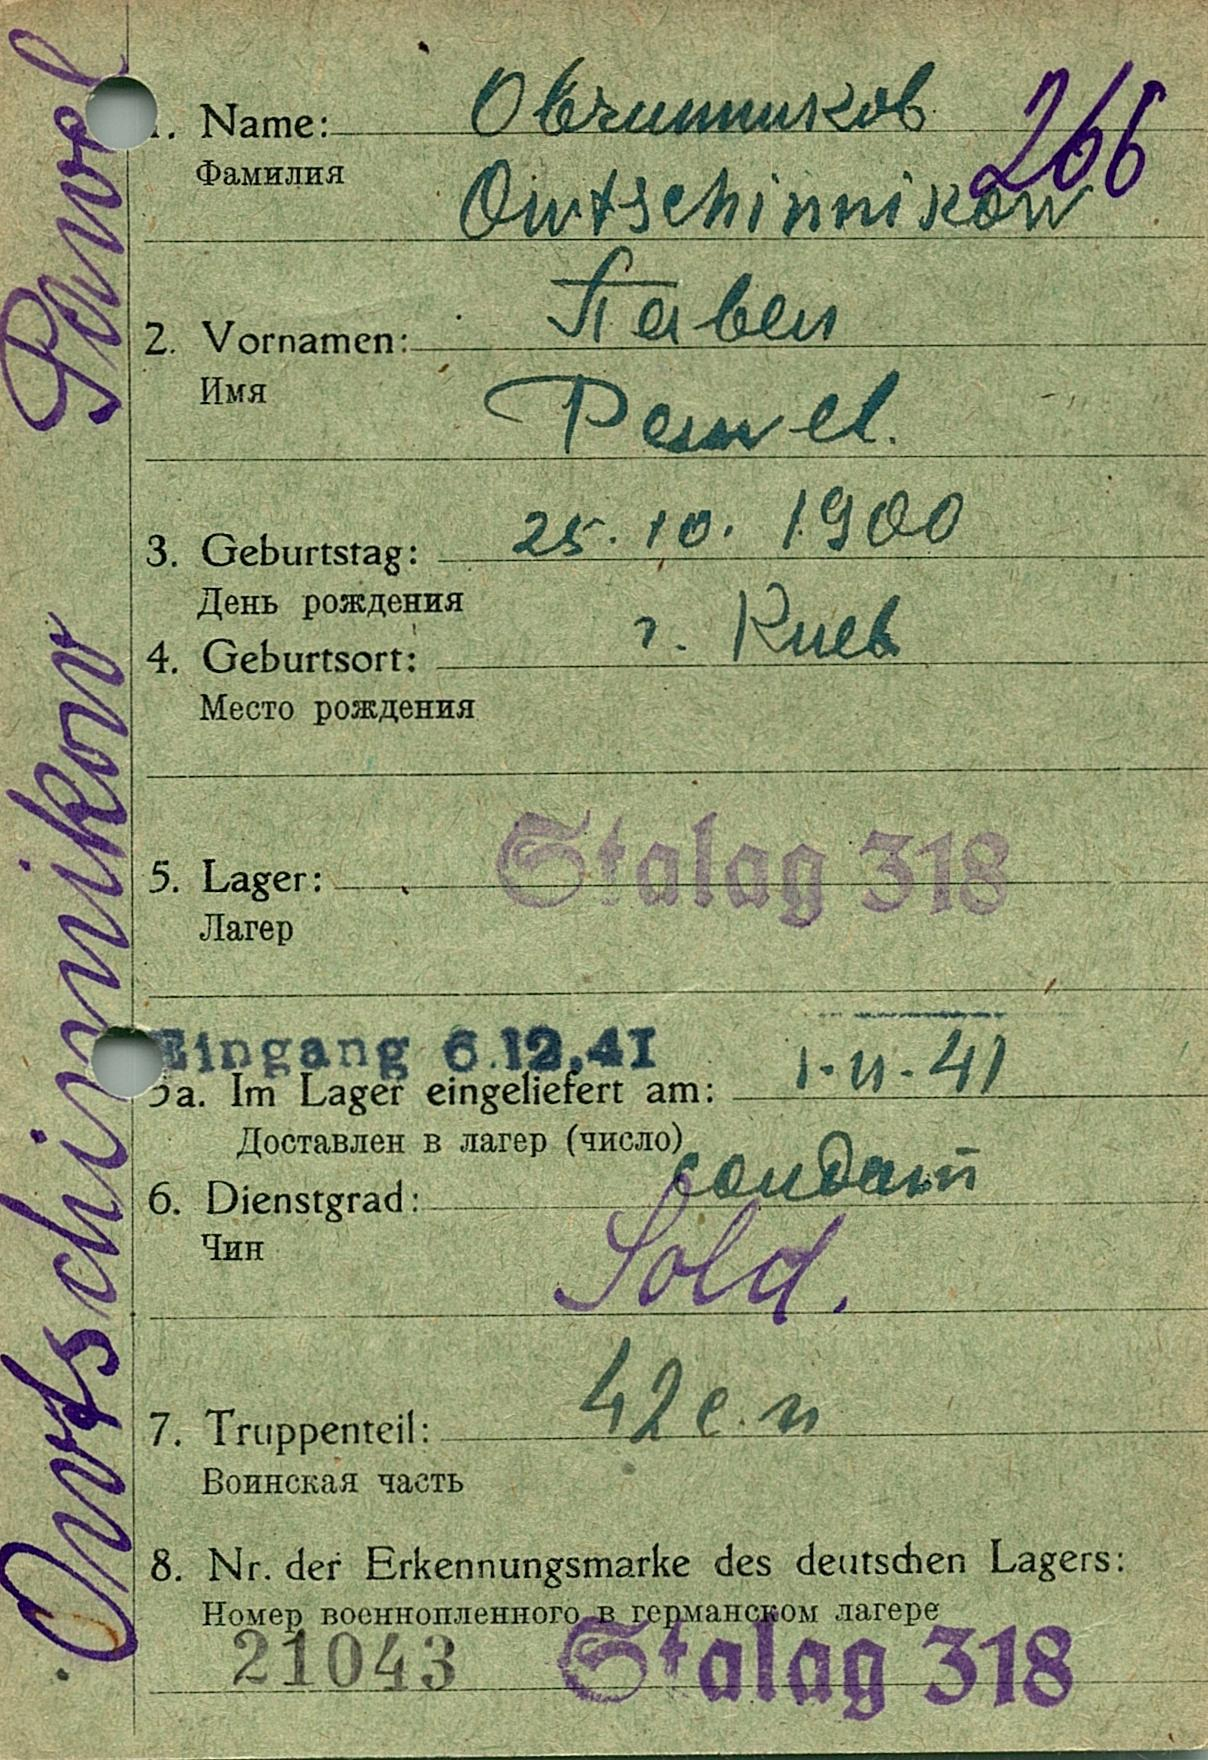 Owtschinnikow Pawel
1. Name: Овчинников 266
Фамилия
Owtschinnikow
2. Vornamen: Павел
Имя
Pawel.
3. Geburtstag: 25. 10. 1900
День рождения
4. Geburtsort: г. Киев
Место рождения
5. Lager: Stalag 318
Лагер
Eingang 6.12.41
5a. Im Lager eingeliefert am: 1.11.41
Доставлен в лагер (число)
6. Dienstgrad: солдат
Чин
Sold.
7. Truppenteil: 42 с.п
Воинская часть
8. Nr. der Erkennungsmarke des deutschen Lagers:
Номер военнопленного в германском лагере
21043 Stalag 318